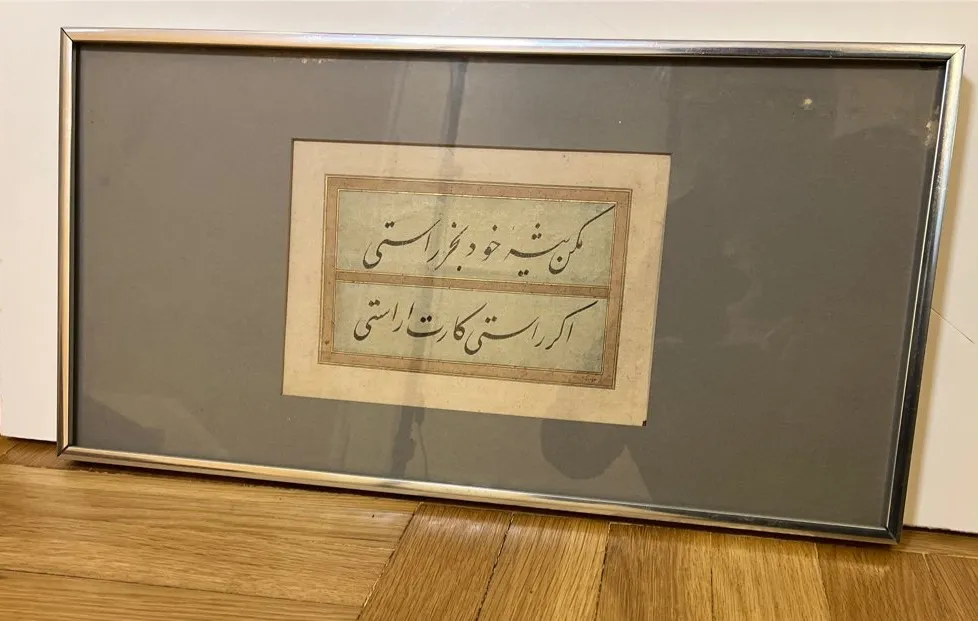 مکن پیشه خود بخز راستی
اکر راستی کارت اراستی